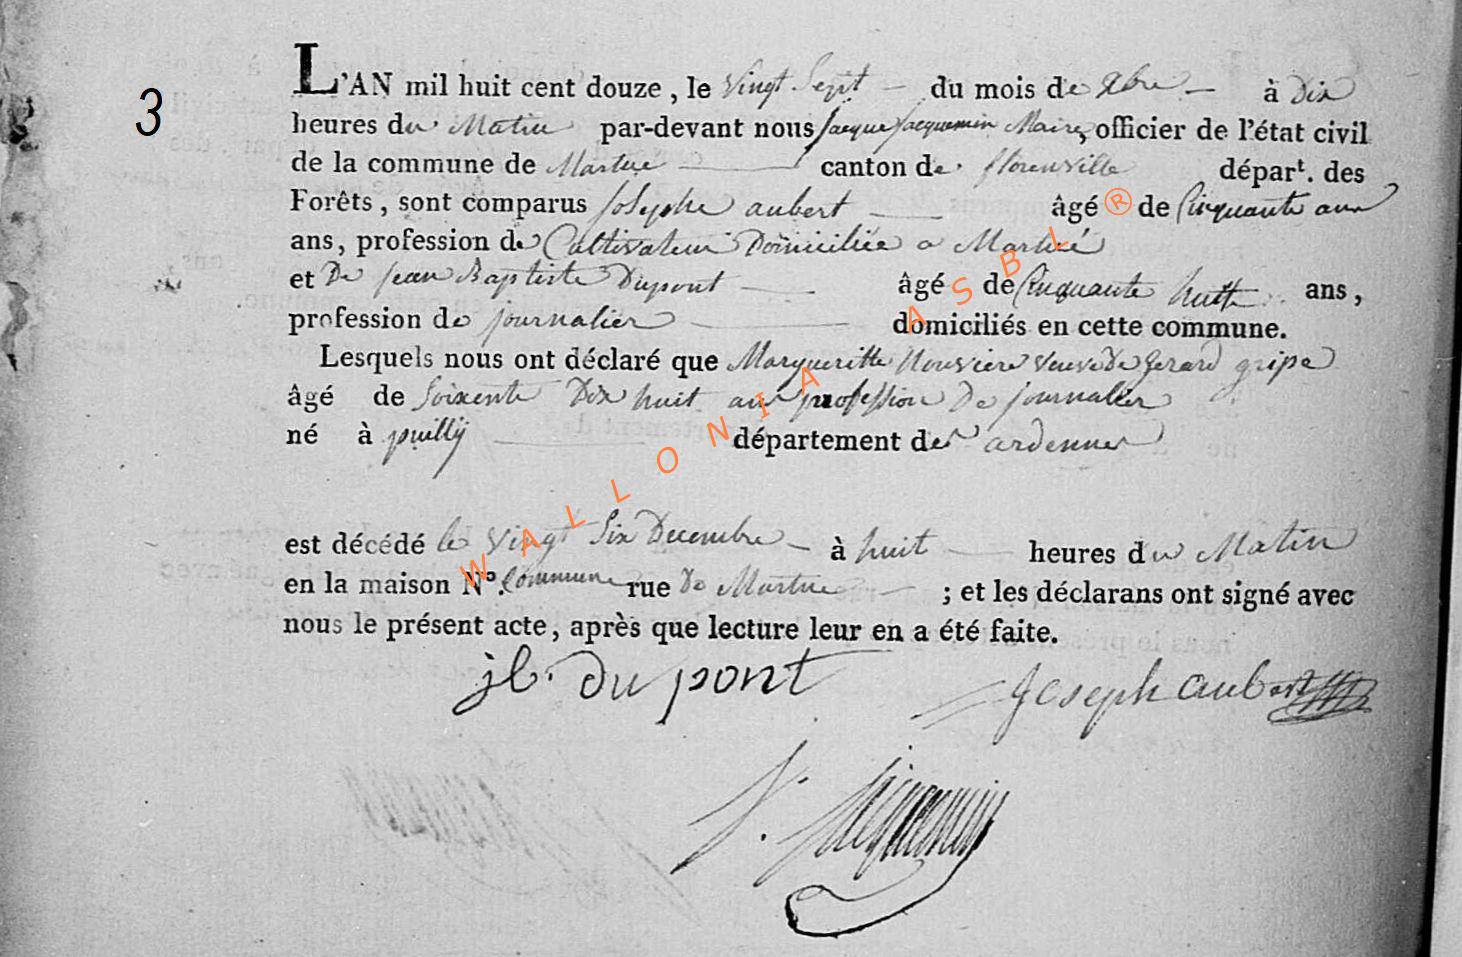 3
L'AN mil huit cent douze, le Vingt Sept du mois de Xbre à Dix
heures du Matin par-devant nous Jacque Jacquemin Maire, officier de l'état civil
de la commune de Martue canton de florenville départ. des
Forêts, sont comparus Josephe aubert âgé de Cinquante ans
ans, profession de Cultivateur Domiciliée a Martué
et De jean Baptiste Dupont âgé de Cinquante huitte ans,
profession de journalier domiciliés en cette commune.
Lesquels nous ont déclaré que Margueritte veuve De Gerard gripe
âgé de Soixente Dix huit ans profession De journalier
né à puilly département des ardennes
est décédé le Vingt Six Decembre à huit heures du Matin
en la maison N°. Commune rue De Martue ; et les déclarans ont signé avec
nous le présent acte, après que lecture leur en a été faite.
jb. du pont
Joseph aubert
J. Jacquemin
WALLONIA ASBL ®